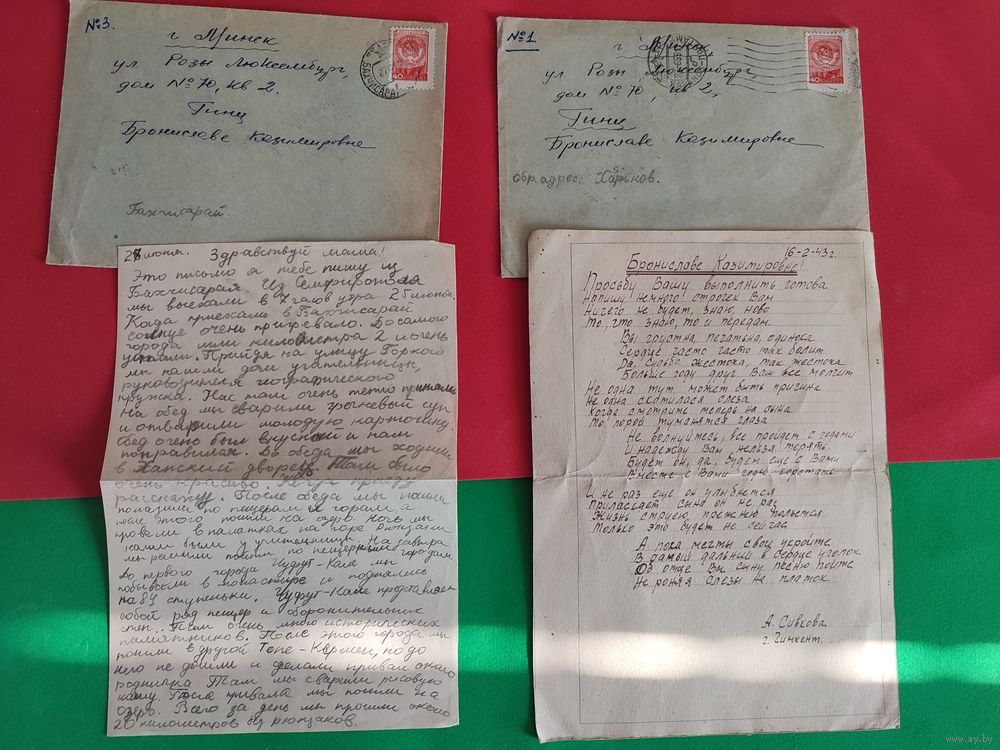 №3.
г. Минск
ул Розы Люксембург,
дом № 70, кв 2.
Гинц
Брониславе Казимировне
Бахчисарай
40
№1
г. Минск
ул Розы Люксембург,
дом № 70, кв 2,
Гинц
Брониславе Казимировне
обр. адрес: Харьков.
40
28 июня. Здравствуй мама!
Это письмо я тебе пишу из
Бахчисарая. Из Симфирополя
мы выехали в 7 часов утра 25 июня.
Когда приехали в Бахчисарай
солнце очень пригревало. До самого
города шли километра 2 и очень
устали. Придя на улицу Горкого
мы нашли дом учительницы,
руководителя географического
кружка. Нас там очень тепло приняли
На обед мы сварили гречневый суп
и отварили молодую картошку.
Обед очень был вкусным и нам
понравился. До обеда мы ходили
в Ханский дворец. Там было
очень красиво. приеду
расскажу. После обеда мы пошли
полазили по пещерам и горам, а
после этого пошли на озеро. Ночь мы
провели в палатках на горе
нами были у учительницы. На завтра
мы решили пойти по пещерным городам
До первого города Чуфут-Кале мы
побывали в монастыре и поднялись
на 84 ступеньки. Чуфут-Кале представляет
собой ряд пещер и оборонительных
стен. Там очень много исторических
памятников. После этого города мы
пошли в другой Тепе-Кермен, но до
него не дошли и сделали привал около
родника. Там мы сварили рисовую
кашу. После привала мы пошли на
озеро. Всего за день мы прошли около
20 километров без рюкзаков.
16-2-43г.
Брониславе Казимировне!
Просьбу Вашу выполнить готова
Напишу немного строчек Вам
Ничего не будет, знаю, ново
То, что знаю, то и передам.
Вы грустна, печальна, одинока
Сердце часто часто так болит
Да, судьба жестока, так жестока
Больше году друг Ваш все молчит
Не одна тут может быть причина
Не одна скатилася слеза
Когда смотрите теперь на сына
То порой туманятся глаза
Не волнуйтесь, все пройдет с годами
И надежду Вам нельзя терять
Будет он, да, будет еще с Вами
Вместе с Вами годы коротать
И не раз еще он улыбнется
Приласкает сына он не раз
Жизнь струею прежнею польется
Только это будет не сейчас
А пока мечты свои укройте
В самый дальний в сердце уголок
Об отце Вы сыну песню пойте
Не роняя слезы на платок
А. Сивкова
г. Чимкент.
www.ay.by